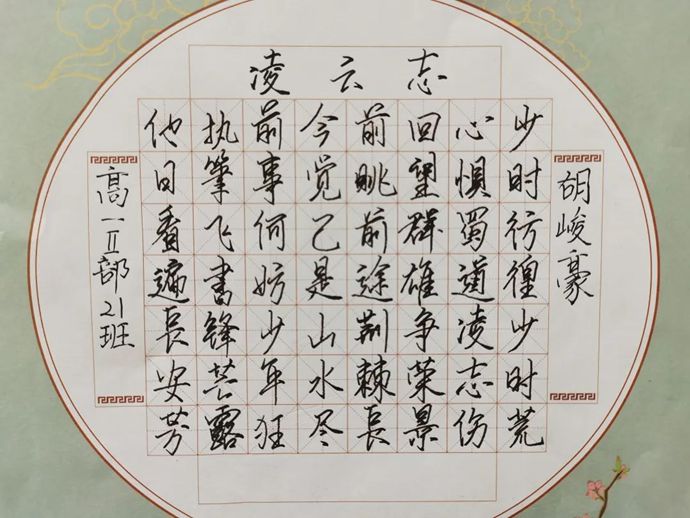 凌云志
胡峻豪
少时彷徨少时荒
心惧蜀道凌志伤
回望群雄争荣景
前眺前途荆棘長
今觉己是山水尽
前事何妨少年狂
执筆飞書鋒芒露
他日看遍長安芳
高一II部21班